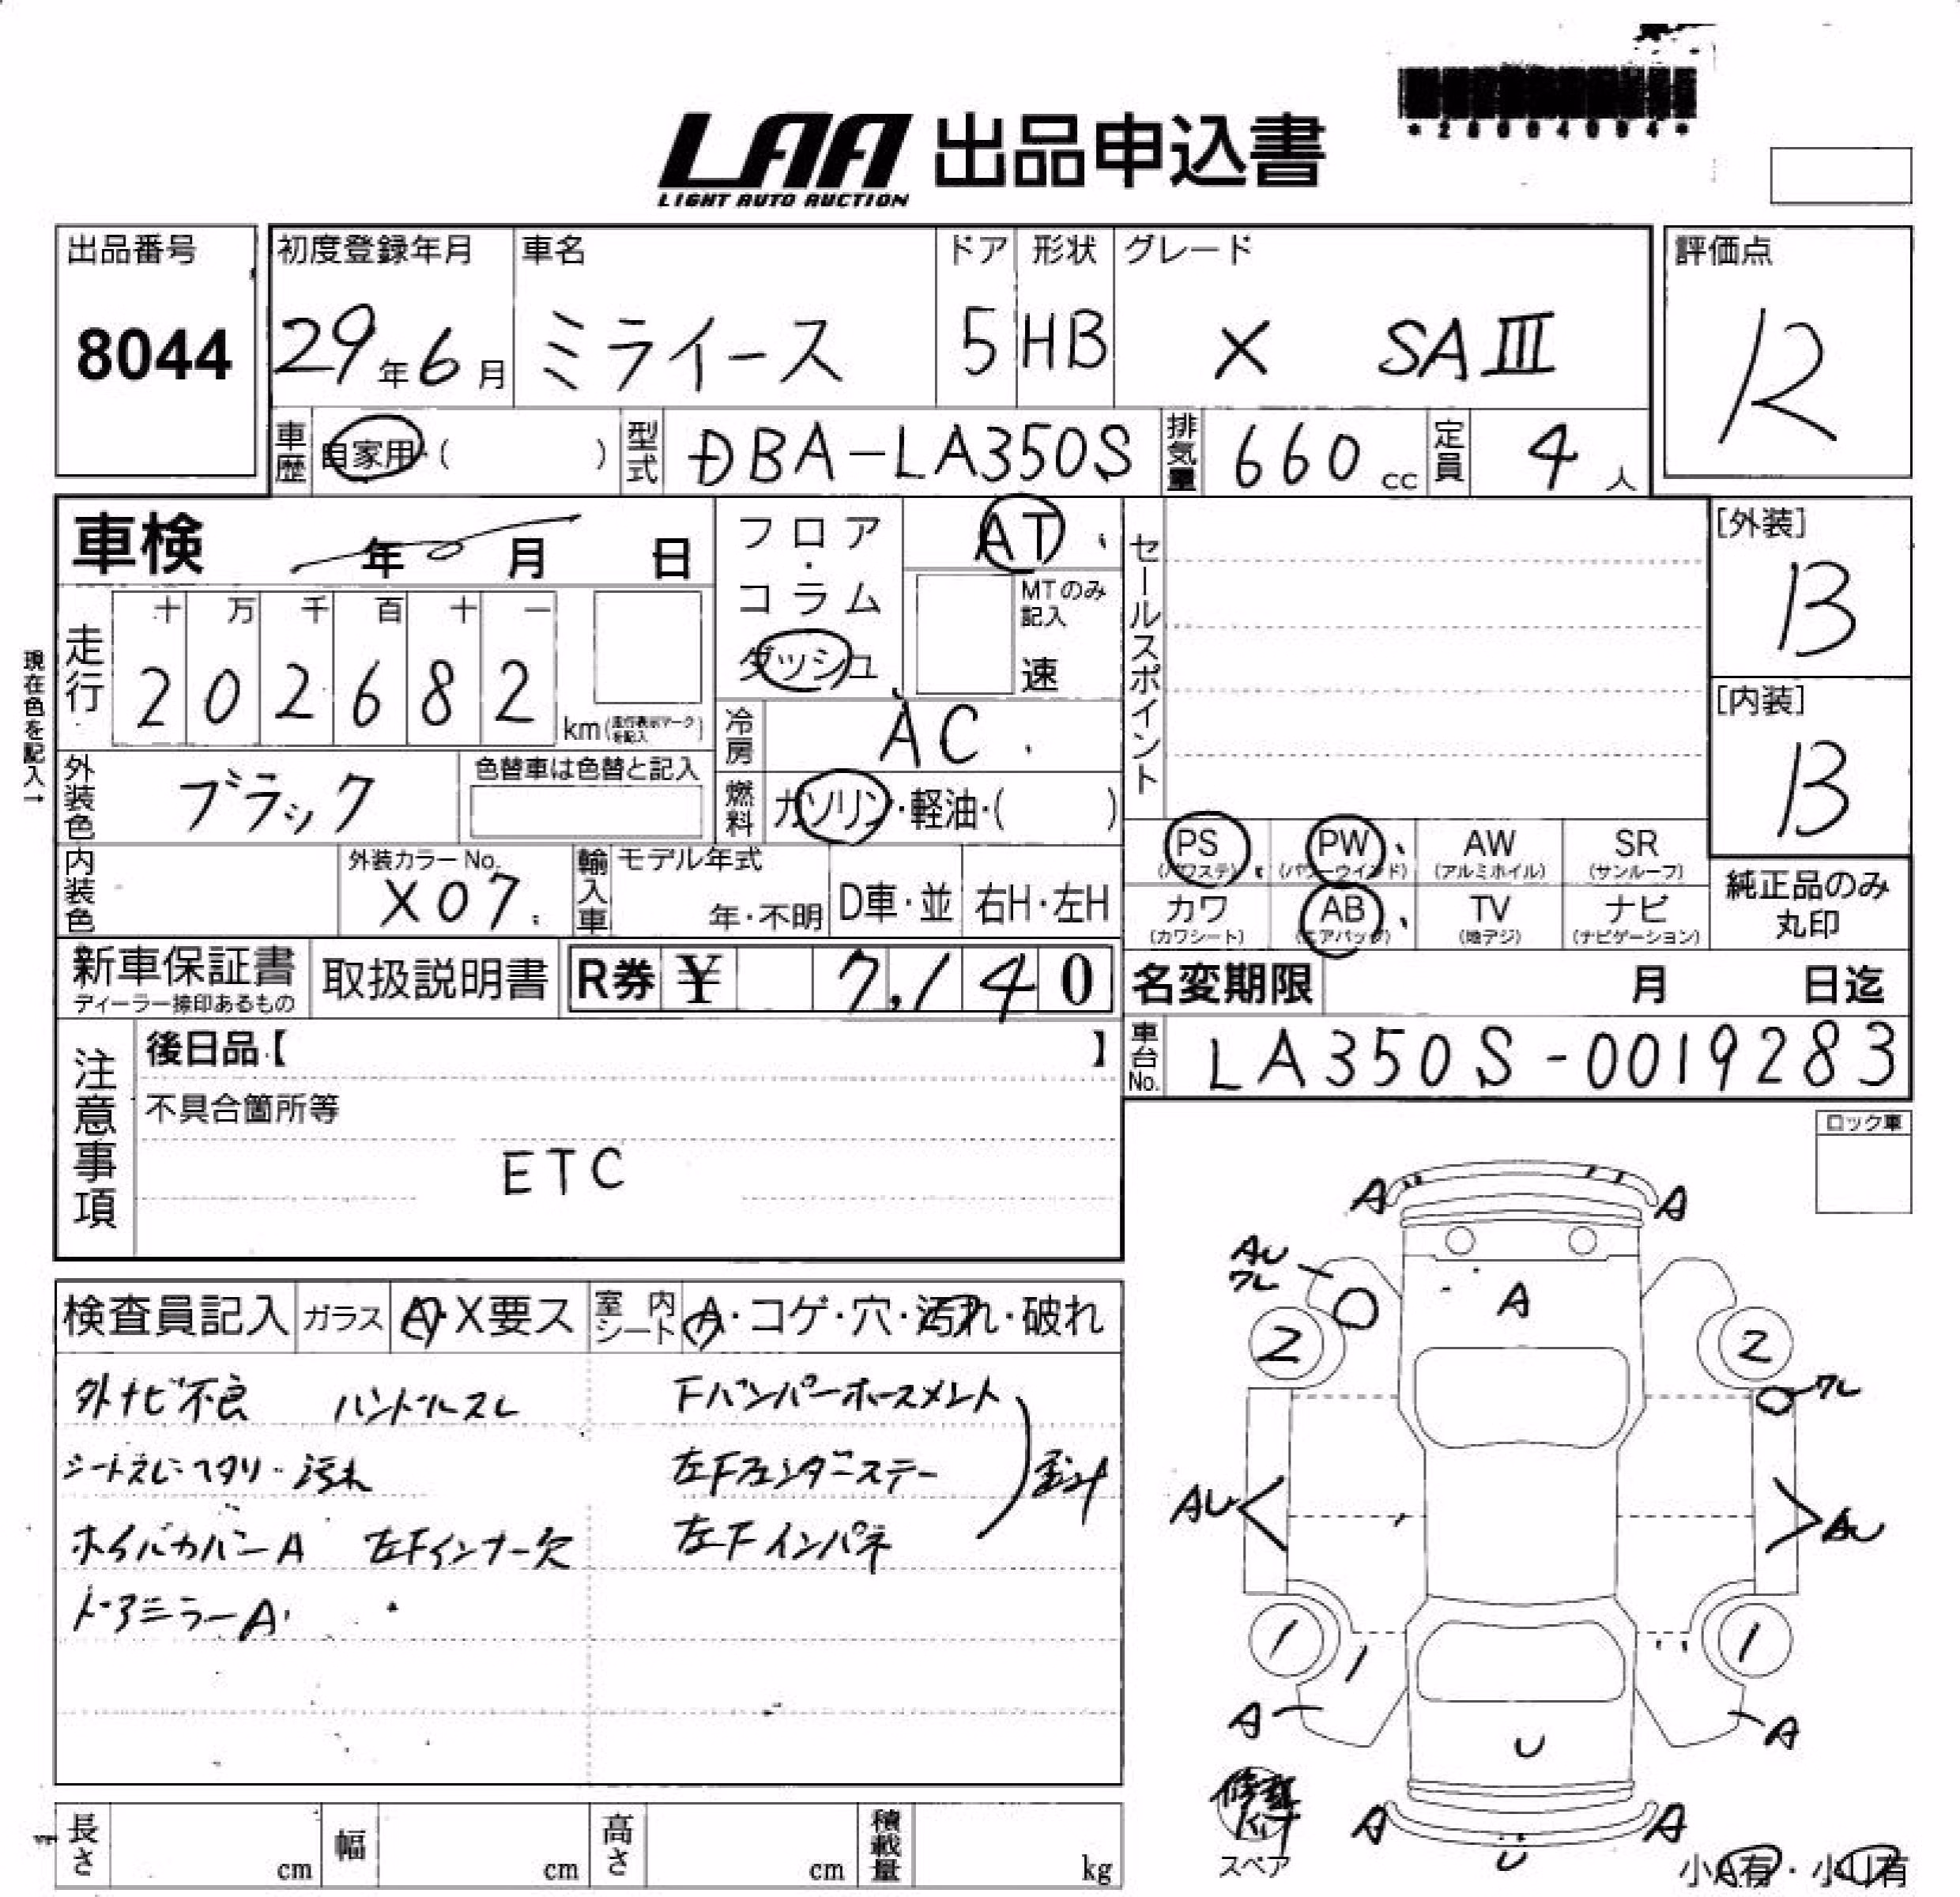 *28004094*
LAA 出品申込書
LIGHT AUTO AUCTION
出品番号
8044
初度登録年月
29年6月
車名
ミライース
ドア
5
形状
HB
グレード
X SAⅢ
評価点
R
車歴
自家用・( )
型式
DBA-LA350S
排気量
660 cc
定員
4 人
車検 年 月 日
フロア・コラム
ダッシュ
AT
MTのみ記入
速
セールスポイント
[外装]
B
[内装]
B
現在色を記入→
走行
十 万 千 百 十 一
2 0 2 6 8 2
km(走行表示マークを記入)
冷房
AC
外装色
ブラック
色替車は色替と記入
燃料
ガソリン・軽油・( )
内装色
外装カラーNo.
X07
輸入車
モデル年式
年・不明
D車・並
右H・左H
PS
(パワステ)
PW
(パワーウインド)
AW
(アルミホイル)
SR
(サンルーフ)
カワ
(カワシート)
AB
(エアバッグ)
TV
(地デジ)
ナビ
(ナビゲーション)
純正品のみ
丸印
新車保証書
ディーラー捺印あるもの
取扱説明書
R券 ¥ 7,140
名変期限 月 日迄
車台No.
LA350S-0019283
注意事項
後日品【 】
不具合箇所等
ETC
ロック車
検査員記入
ガラス
A・X要ス
室内シート
A・コゲ・穴・汚れ・破れ
外ナビ不良 ハンドルスレ
シートスレ・ヘタリ・汚れ
ホイルカバーA 左Fインナー欠
ドアミラーA
Fバンパーホースメント
左Fフェンダーステー
左Fインパネ
A A
AU
ワレ
A
2 2
ワレ
AU AU
1 1
A A
U
A A
U
スペア
小A有・小U有
長さ cm
幅 cm
高さ cm
積載量 kg